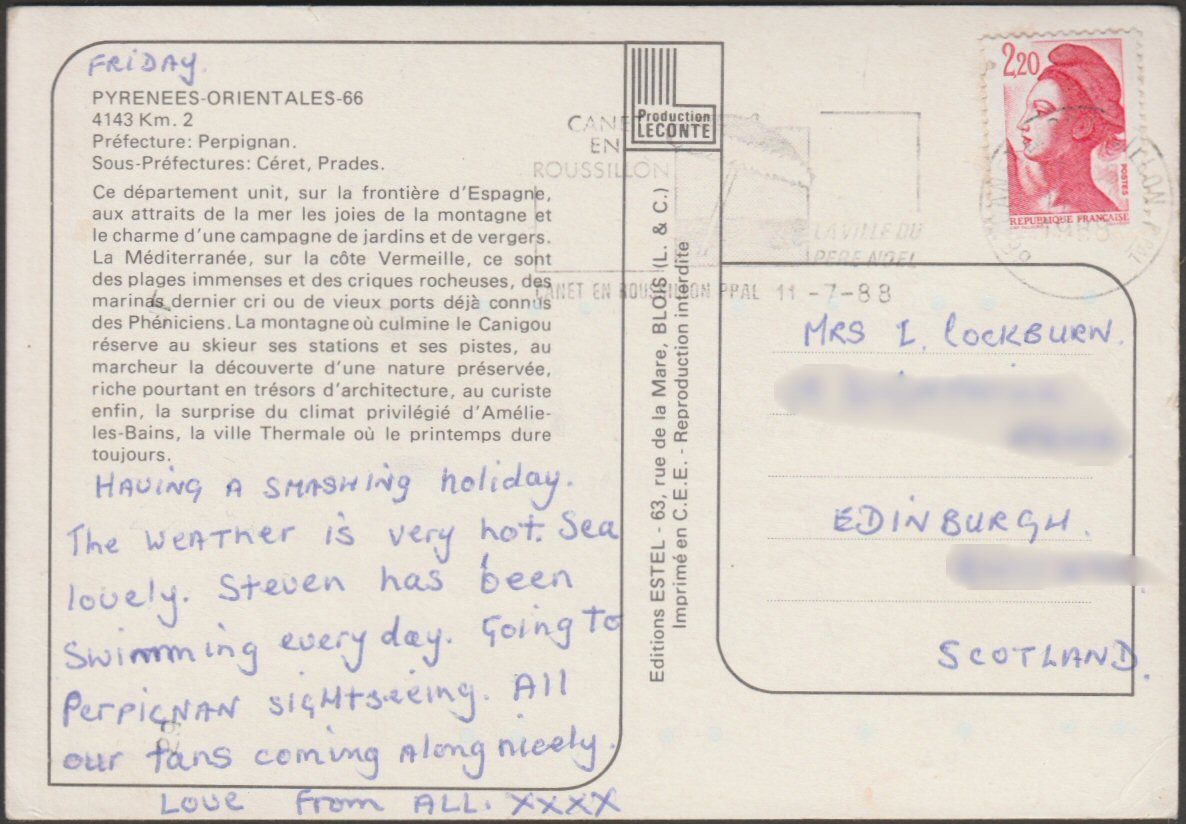 FRIDAY.
PYRENEES-ORIENTALES-66
4143 Km. 2
Préfecture: Perpignan.
Sous-Préfectures: Céret, Prades.
Ce département unit, sur la frontière d'Espagne,
aux attraits de la mer les joies de la montagne et
le charme d'une campagne de jardins et de vergers.
La Méditerranée, sur la côte Vermeille, ce sont
des plages immenses et des criques rocheuses, des
marinas dernier cri ou de vieux ports déjà connus
des Phéniciens. La montagne où culmine le Canigou
réserve au skieur ses stations et ses pistes, au
marcheur la découverte d'une nature préservée,
riche pourtant en trésors d'architecture, au curiste
enfin, la surprise du climat privilégié d'Amélie-
les-Bains, la ville Thermale où le printemps dure
toujours.
HAVING A SMASHING holiday.
The WEATHER is very hot. Sea
lovely. Steven has been
Swimming every day. Going To
PERPIGNAN SIGHTSEEING. All
our tans coming Along nicely.
LOVE From ALL. XXXX
Production
LECONTE
Editions ESTEL - 63, rue de la Mare, BLOIS (L. & C.)
Imprimé en C.E.E. - Reproduction interdite
CANET
EN
ROUSSILLON
LA VILLE DU
PERE NOEL
CANET EN ROUSSILLON PPAL 11 -7-88
2,20
POSTES
REPUBLIQUE FRANÇAISE
1988
MRS I. COCKBURN.
EDINBURGH.
SCOTLAND.